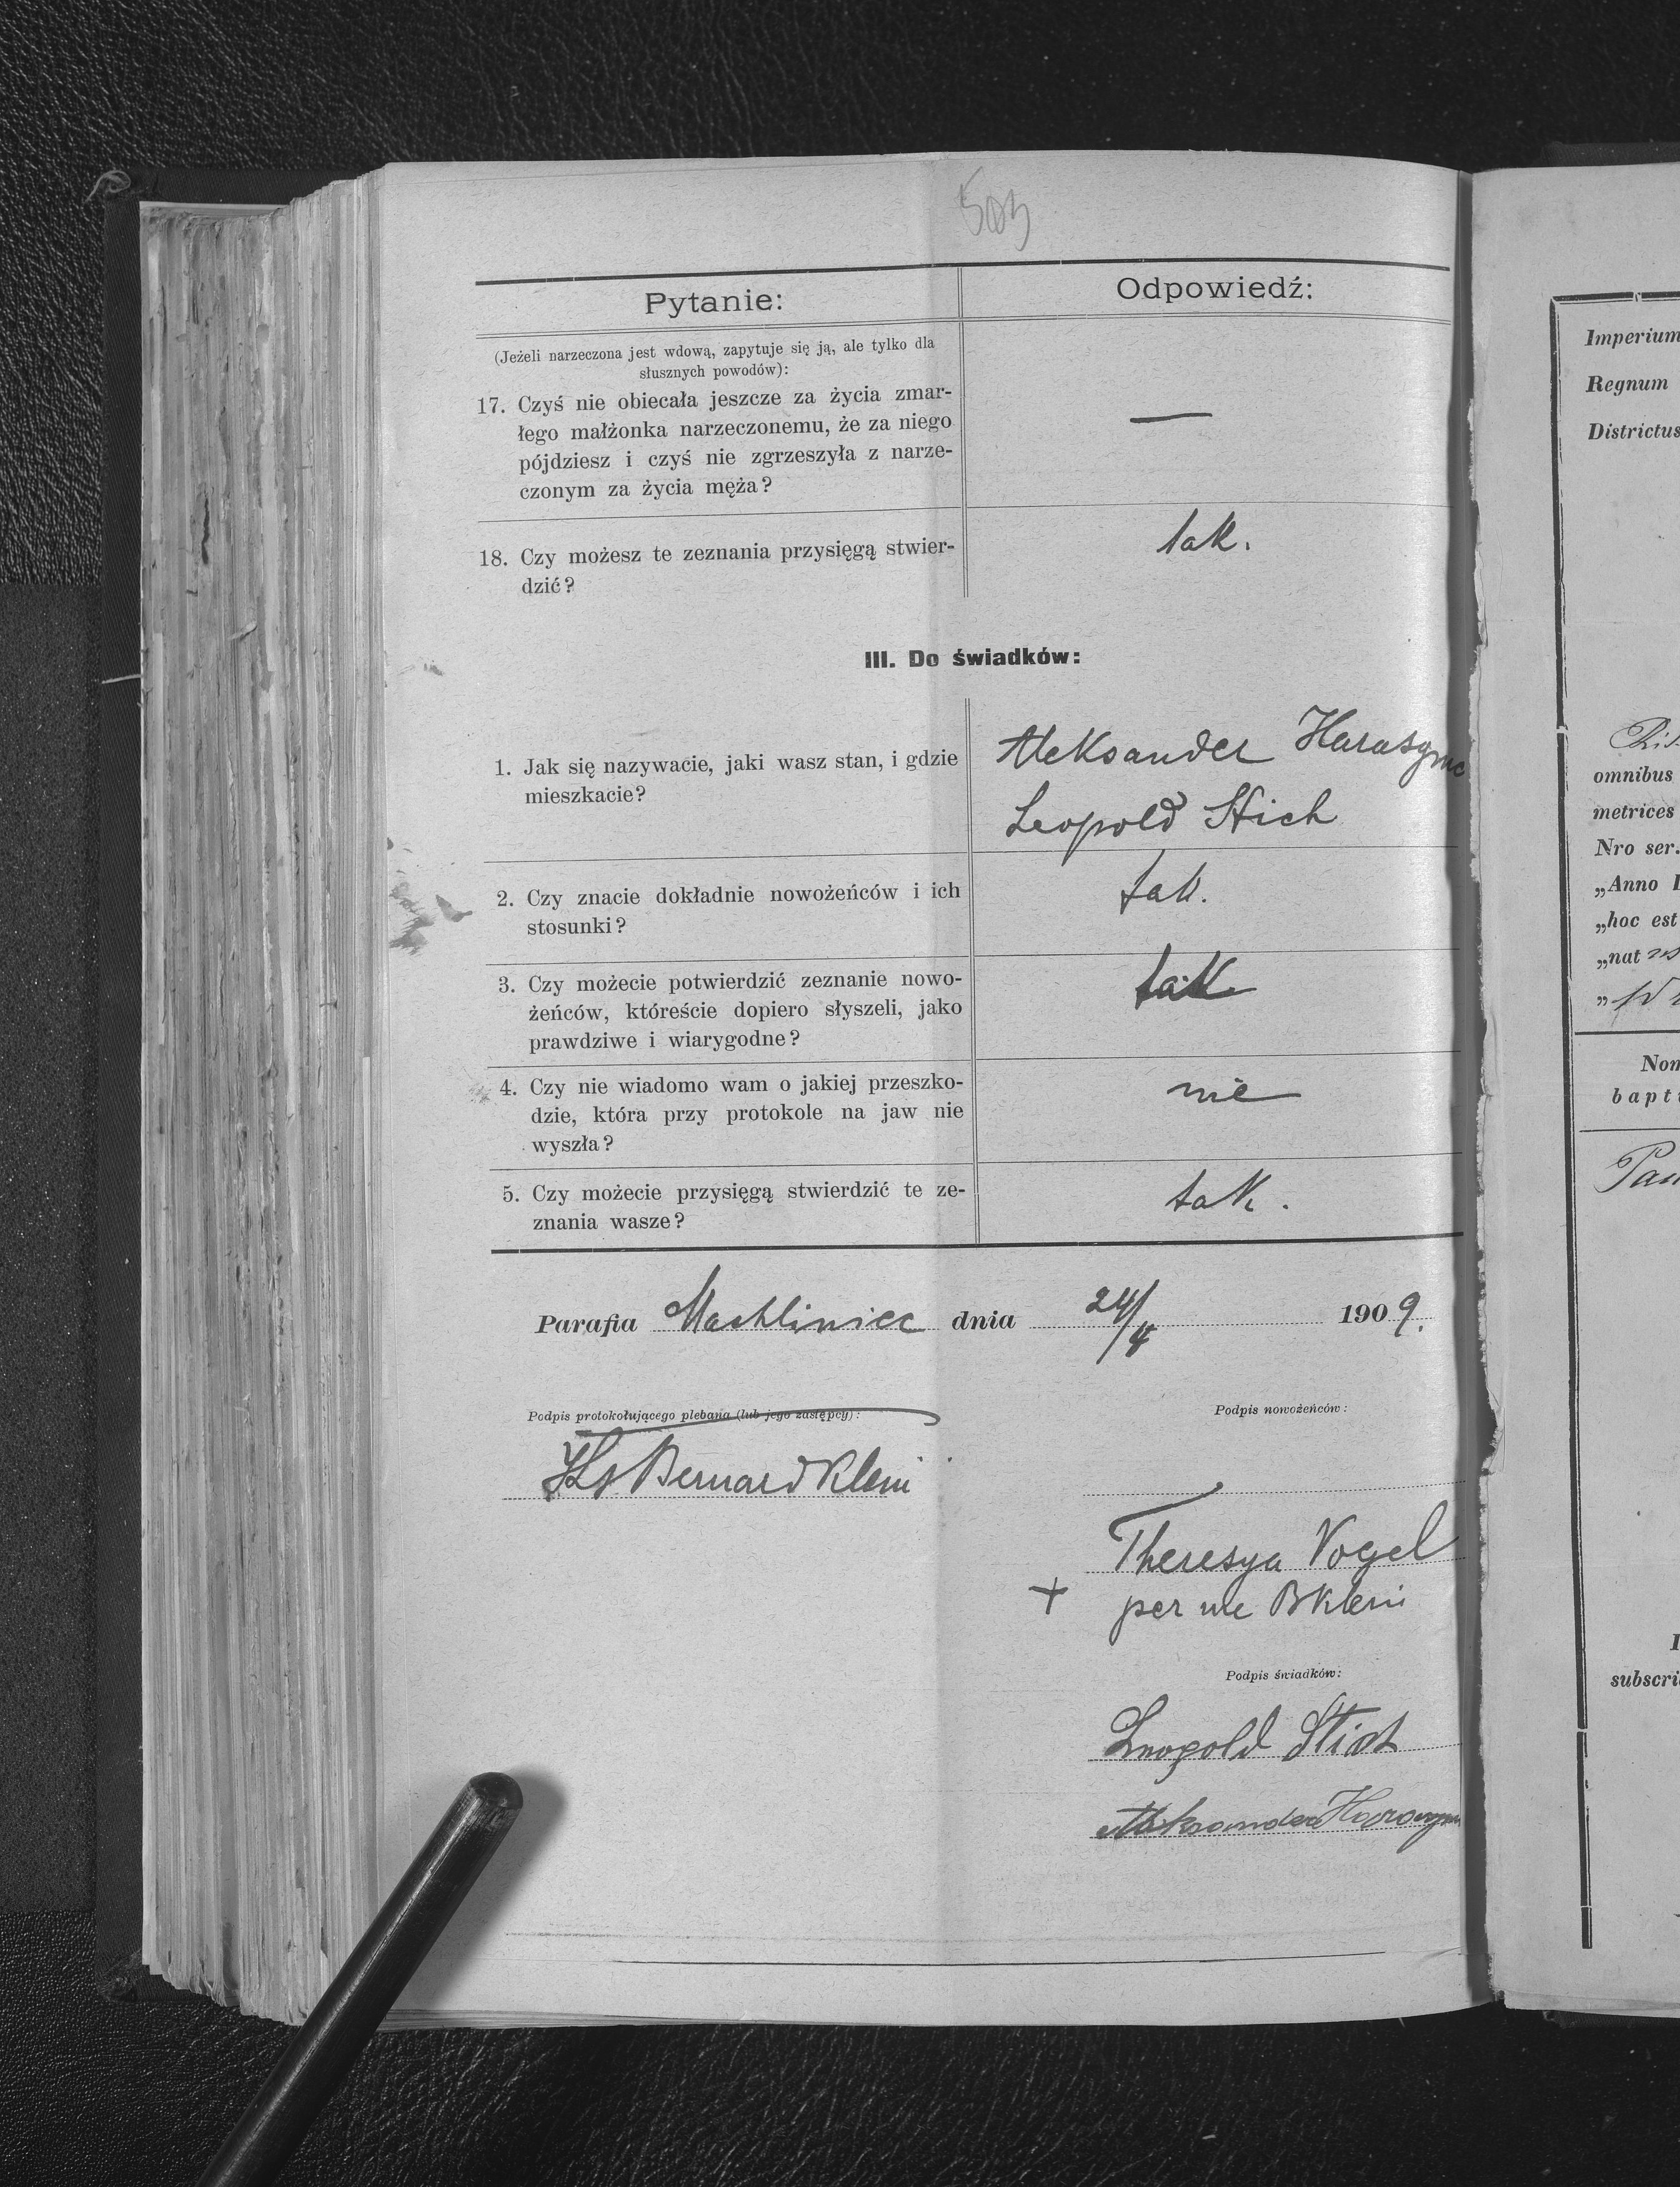 503
Pytanie:
Odpowiedź:
(Jeżeli narzeczona jest wdową, zapytuje się ją, ale tylko dla
słusznych powodów):
17. Czyś nie obiecała jeszcze za życia zmar-
łego małżonka narzeczonemu, że za niego
pójdziesz i czyś nie zgrzeszyła z narze-
czonym za życia męża?
—
18. Czy możesz te zeznania przysięgą stwier-
dzić?
tak.
III. Do świadków:
1. Jak się nazywacie, jaki wasz stan, i gdzie
mieszkacie?
Aleksander
Leopold Stich
2. Czy znacie dokładnie nowożeńców i ich
stosunki?
tak.
3. Czy możecie potwierdzić zeznanie nowo-
żeńców, któreście dopiero słyszeli, jako
prawdziwe i wiarygodne?
tak
4. Czy nie wiadomo wam o jakiej przeszko-
dzie, która przy protokole na jaw nie
wyszła?
nie
5. Czy możecie przysięgą stwierdzić te ze-
znania wasze?
tak.
Parafia Machliniec dnia 24/4 1909.
Podpis protokołującego plebana (lub jego zastępcy):
Podpis nowożeńców:
Ks Bernard Klein
Theresya Vogel
+ per me BKlein
Podpis świadków:
Leopold Stich
Aleksander
Imperium
Regnum
Districtus
omnibus
metrices
Nro ser.
„Anno
„hoc est
„nat
„
Nom
bapt
subscri